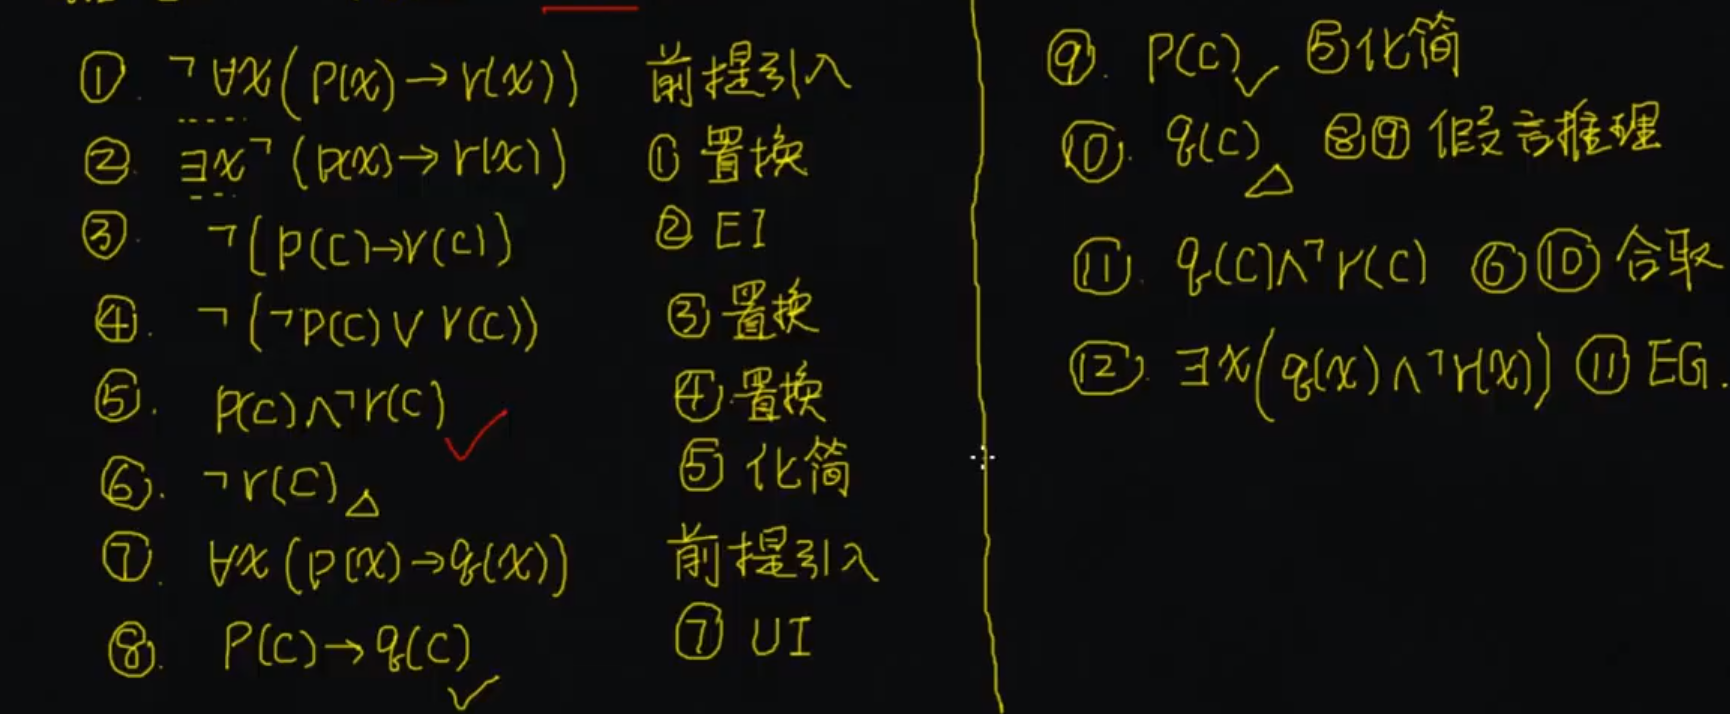 ①. ¬∀x(p(x)→r(x)) 前提引入
②. ∃x¬(p(x)→r(x)) ①置换
③. ¬(p(c)→r(c)) ② EI
④. ¬(¬p(c)∨r(c)) ③置换
⑤. p(c)∧¬r(c) ④.置换
⑥. ¬r(c) ⑤化简
⑦. ∀x(p(x)→q(x)) 前提引入
⑧. p(c)→q(c) ⑦ UI
⑨. p(c) ⑤化简
⑩. q(c) ⑧⑨假言推理
⑪. q(c)∧¬r(c) ⑥⑩合取
⑫. ∃x(q(x)∧¬r(x)) ⑪ EG.